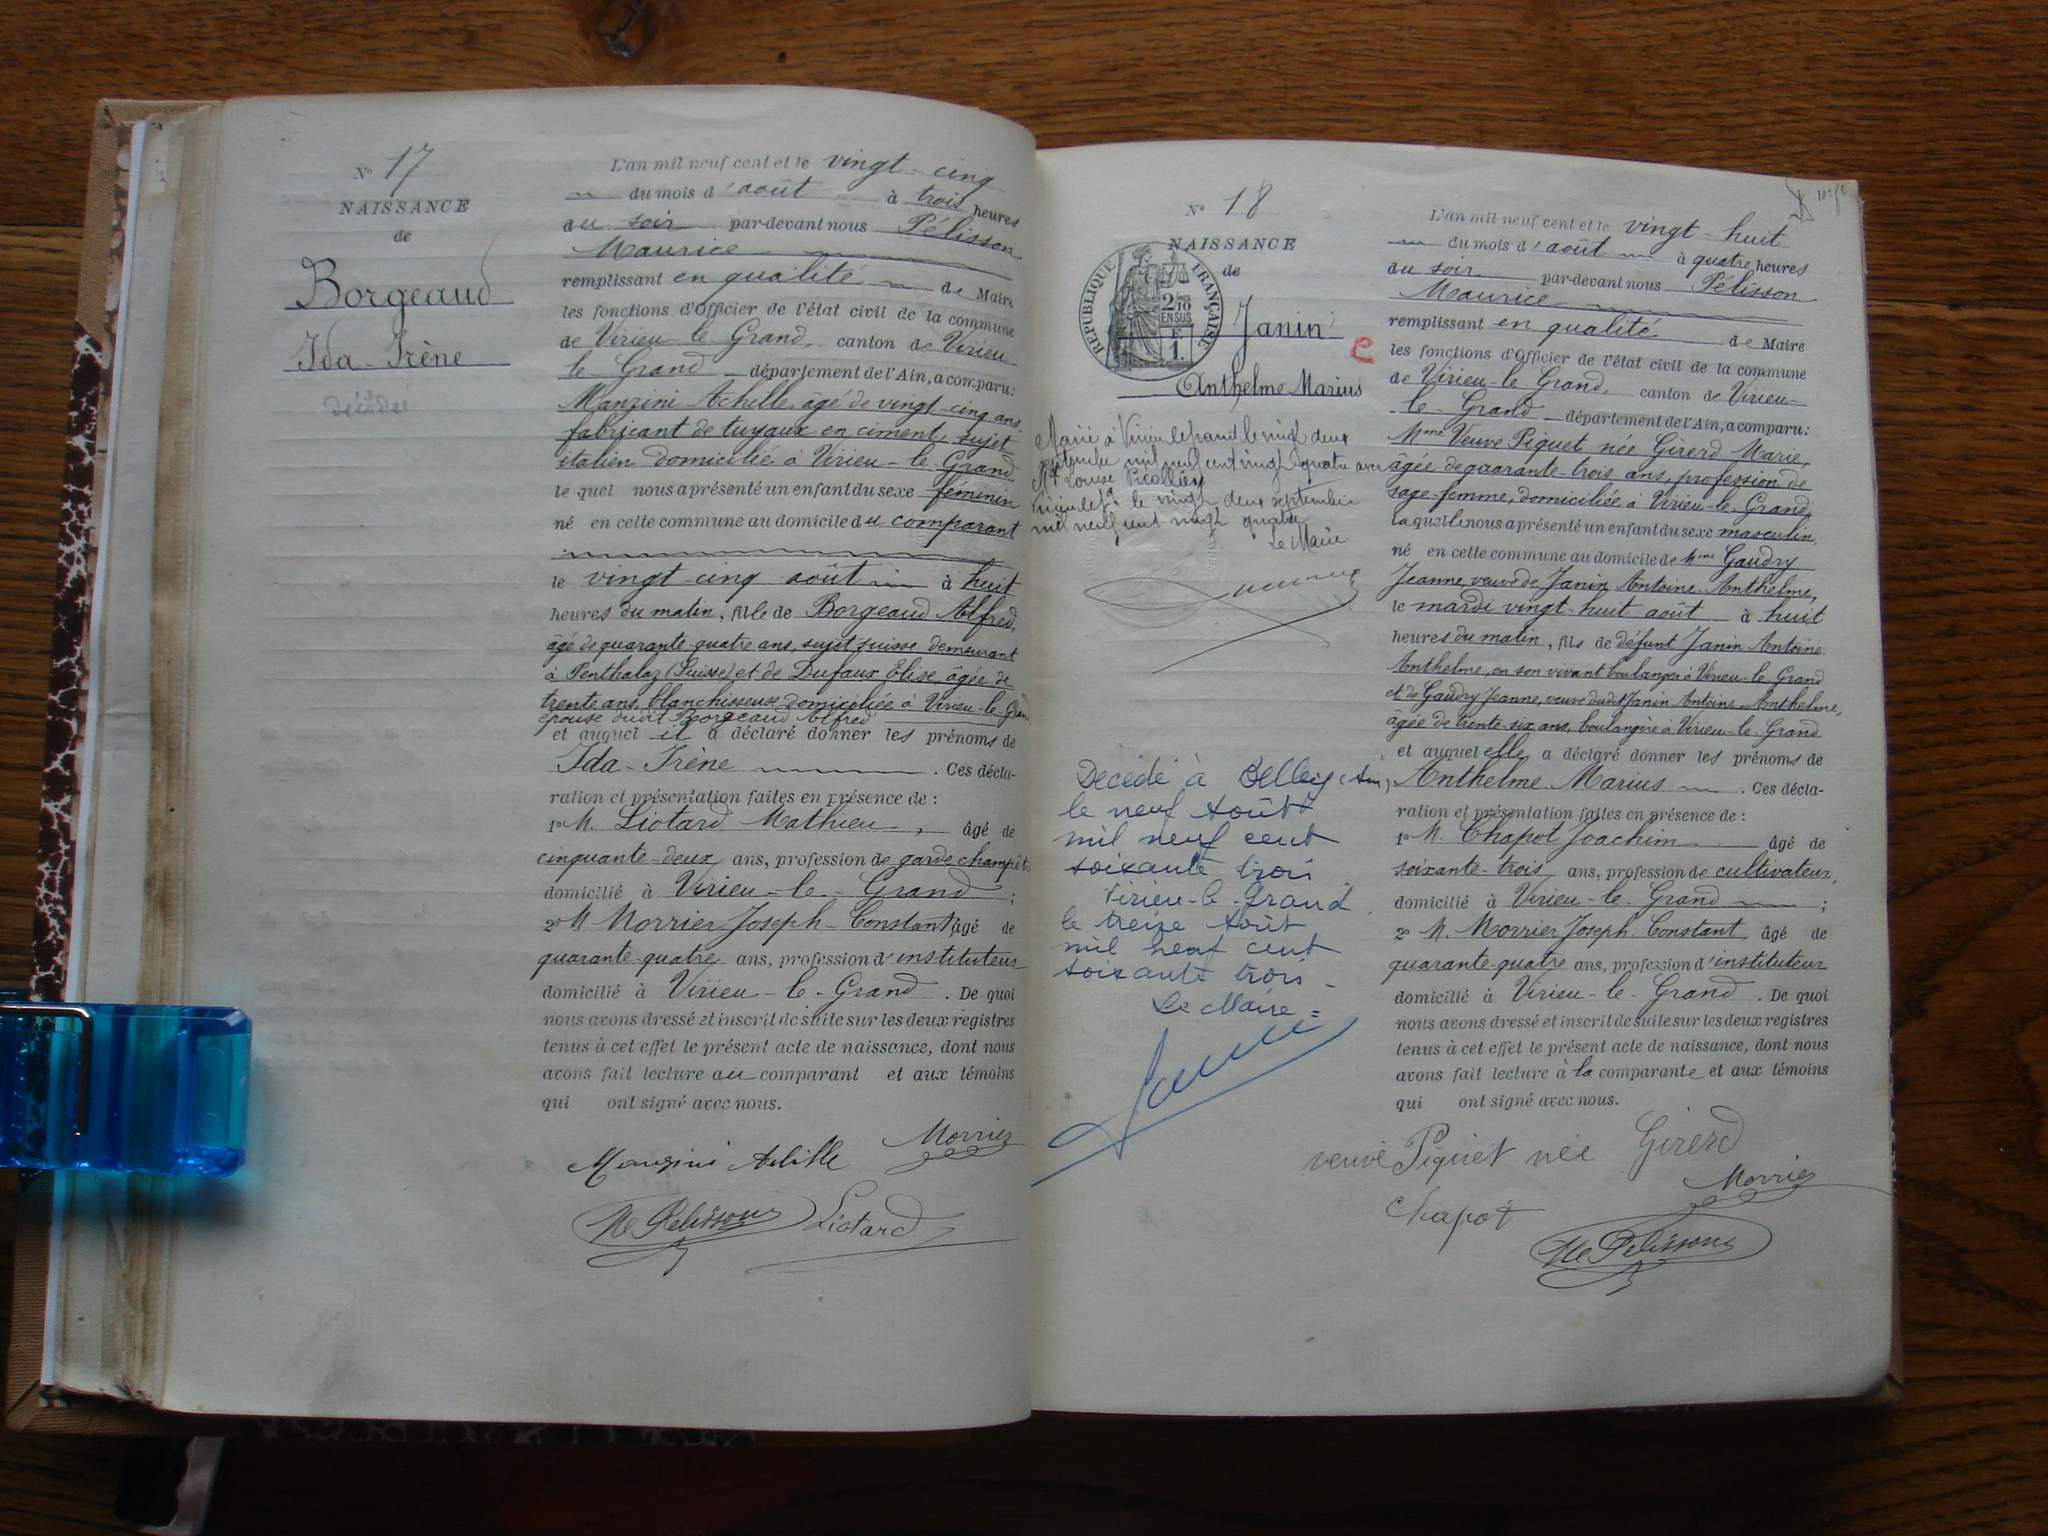 No 17
NAISSANCE
de
Borgeaud
Ida-Irène
décédée
L'an mil neuf cent et le vingt-cinq
du mois d'août à trois heures
du soir par-devant nous Pélisson
Maurice
remplissant en qualité de Maire
les fonctions d'Officier de l'état civil de la commune
de Virieu-le-Grand, canton de Virieu
le-Grand département de l'Ain, a comparu:
Manzini Achille, âgé de vingt-cinq ans,
fabricant de tuyaux en ciment, sujet
italien domicilié à Virieu-le-Grand
le quel nous a présenté un enfant du sexe féminin
né en cette commune au domicile du comparant
le vingt-cinq août à huit
heures du matin, fille de Borgeaud Alfred,
âgé de quarante quatre ans, sujet suisse demeurant
à Penthalaz (Suisse) et de Dufaux Elise, âgée de
trente ans, blanchisseuse domiciliée à Virieu-le-Grand
épouse dudit Borgeaud Alfred
et auquel il a déclaré donner les prénoms de
Ida-Irène . Ces décla-
ration et présentation faites en présence de :
1o M. Liotard Mathieu, âgé de
cinquante-deux ans, profession de garde champêtre
domicilié à Virieu-le-Grand ;
2o M. Morrier Joseph-Constant, âgé de
quarante-quatre ans, profession d'instituteur
domicilié à Virieu-le-Grand . De quoi
nous avons dressé et inscrit de suite sur les deux registres
tenus à cet effet le présent acte de naissance, dont nous
avons fait lecture au comparant et aux témoins
qui ont signé avec nous.
Manzini Achille Morrier
M Pelisson Liotard
No 18
NAISSANCE
de
RÉPUBLIQUE FRANÇAISE
2/10
EN SUS
F.
1.
Janin
Anthelme Marius
e
Marié à Virieu le grand le vingt deux
septembre mil neuf cent vingt quatre avec
Mlle Louise Picollier
Virieu le Gd le vingt deux septembre
mil neuf cent vingt quatre
Le Maire
Décédé à Belley (Ain)
le neuf Août
mil neuf cent
soixante trois
Virieu-le-Grand
le treize Août
mil neuf cent
soixante trois
Le Maire
L'an mil neuf cent et le vingt-huit
du mois d'août à quatre heures
du soir par-devant nous Pélisson
Maurice
remplissant en qualité de Maire
les fonctions d'Officier de l'état civil de la commune
de Virieu-le-Grand, canton de Virieu-
le-Grand département de l'Ain, a comparu:
Mme Veuve Piquet née Girerd Marie,
âgée de quarante-trois ans, profession de
sage-femme, domiciliée à Virieu-le-Grand,
laquelle nous a présenté un enfant du sexe masculin,
né en cette commune au domicile de Mme Gaudry
Jeanne, veuve de Janin Antoine Anthelme,
le mardi vingt-huit août à huit
heures du matin, fils de défunt Janin Antoine
Anthelme, en son vivant boulanger à Virieu-le-Grand
et de Gaudry Jeanne, veuve dudit Janin Antoine Anthelme,
âgée de trente-six ans, boulangère à Virieu-le-Grand
et auquel elle a déclaré donner les prénoms de
Anthelme Marius . Ces décla-
ration et présentation faites en présence de :
1o M. Chapot Joachim âgé de
soixante-trois ans, profession de cultivateur,
domicilié à Virieu-le-Grand ;
2o M. Morrier Joseph Constant âgé de
quarante-quatre ans, profession d'instituteur
domicilié à Virieu-le-Grand . De quoi
nous avons dressé et inscrit de suite sur les deux registres
tenus à cet effet le présent acte de naissance, dont nous
avons fait lecture à la comparante et aux témoins
qui ont signé avec nous.
veuve Piquet née Girerd
Morrier
Chapot
M Pelisson